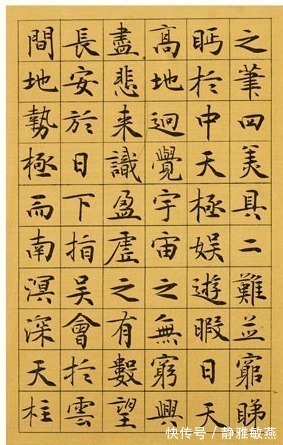 之筆四美具二難並窮睇
眄於中天極娱遊暇日天
髙地迥覺宇宙之無窮興
盡悲来識盈虛之有數望
長安於日下指吴會於雲
間地勢極而南溟深天柱
快传号 / 静雅敏燕